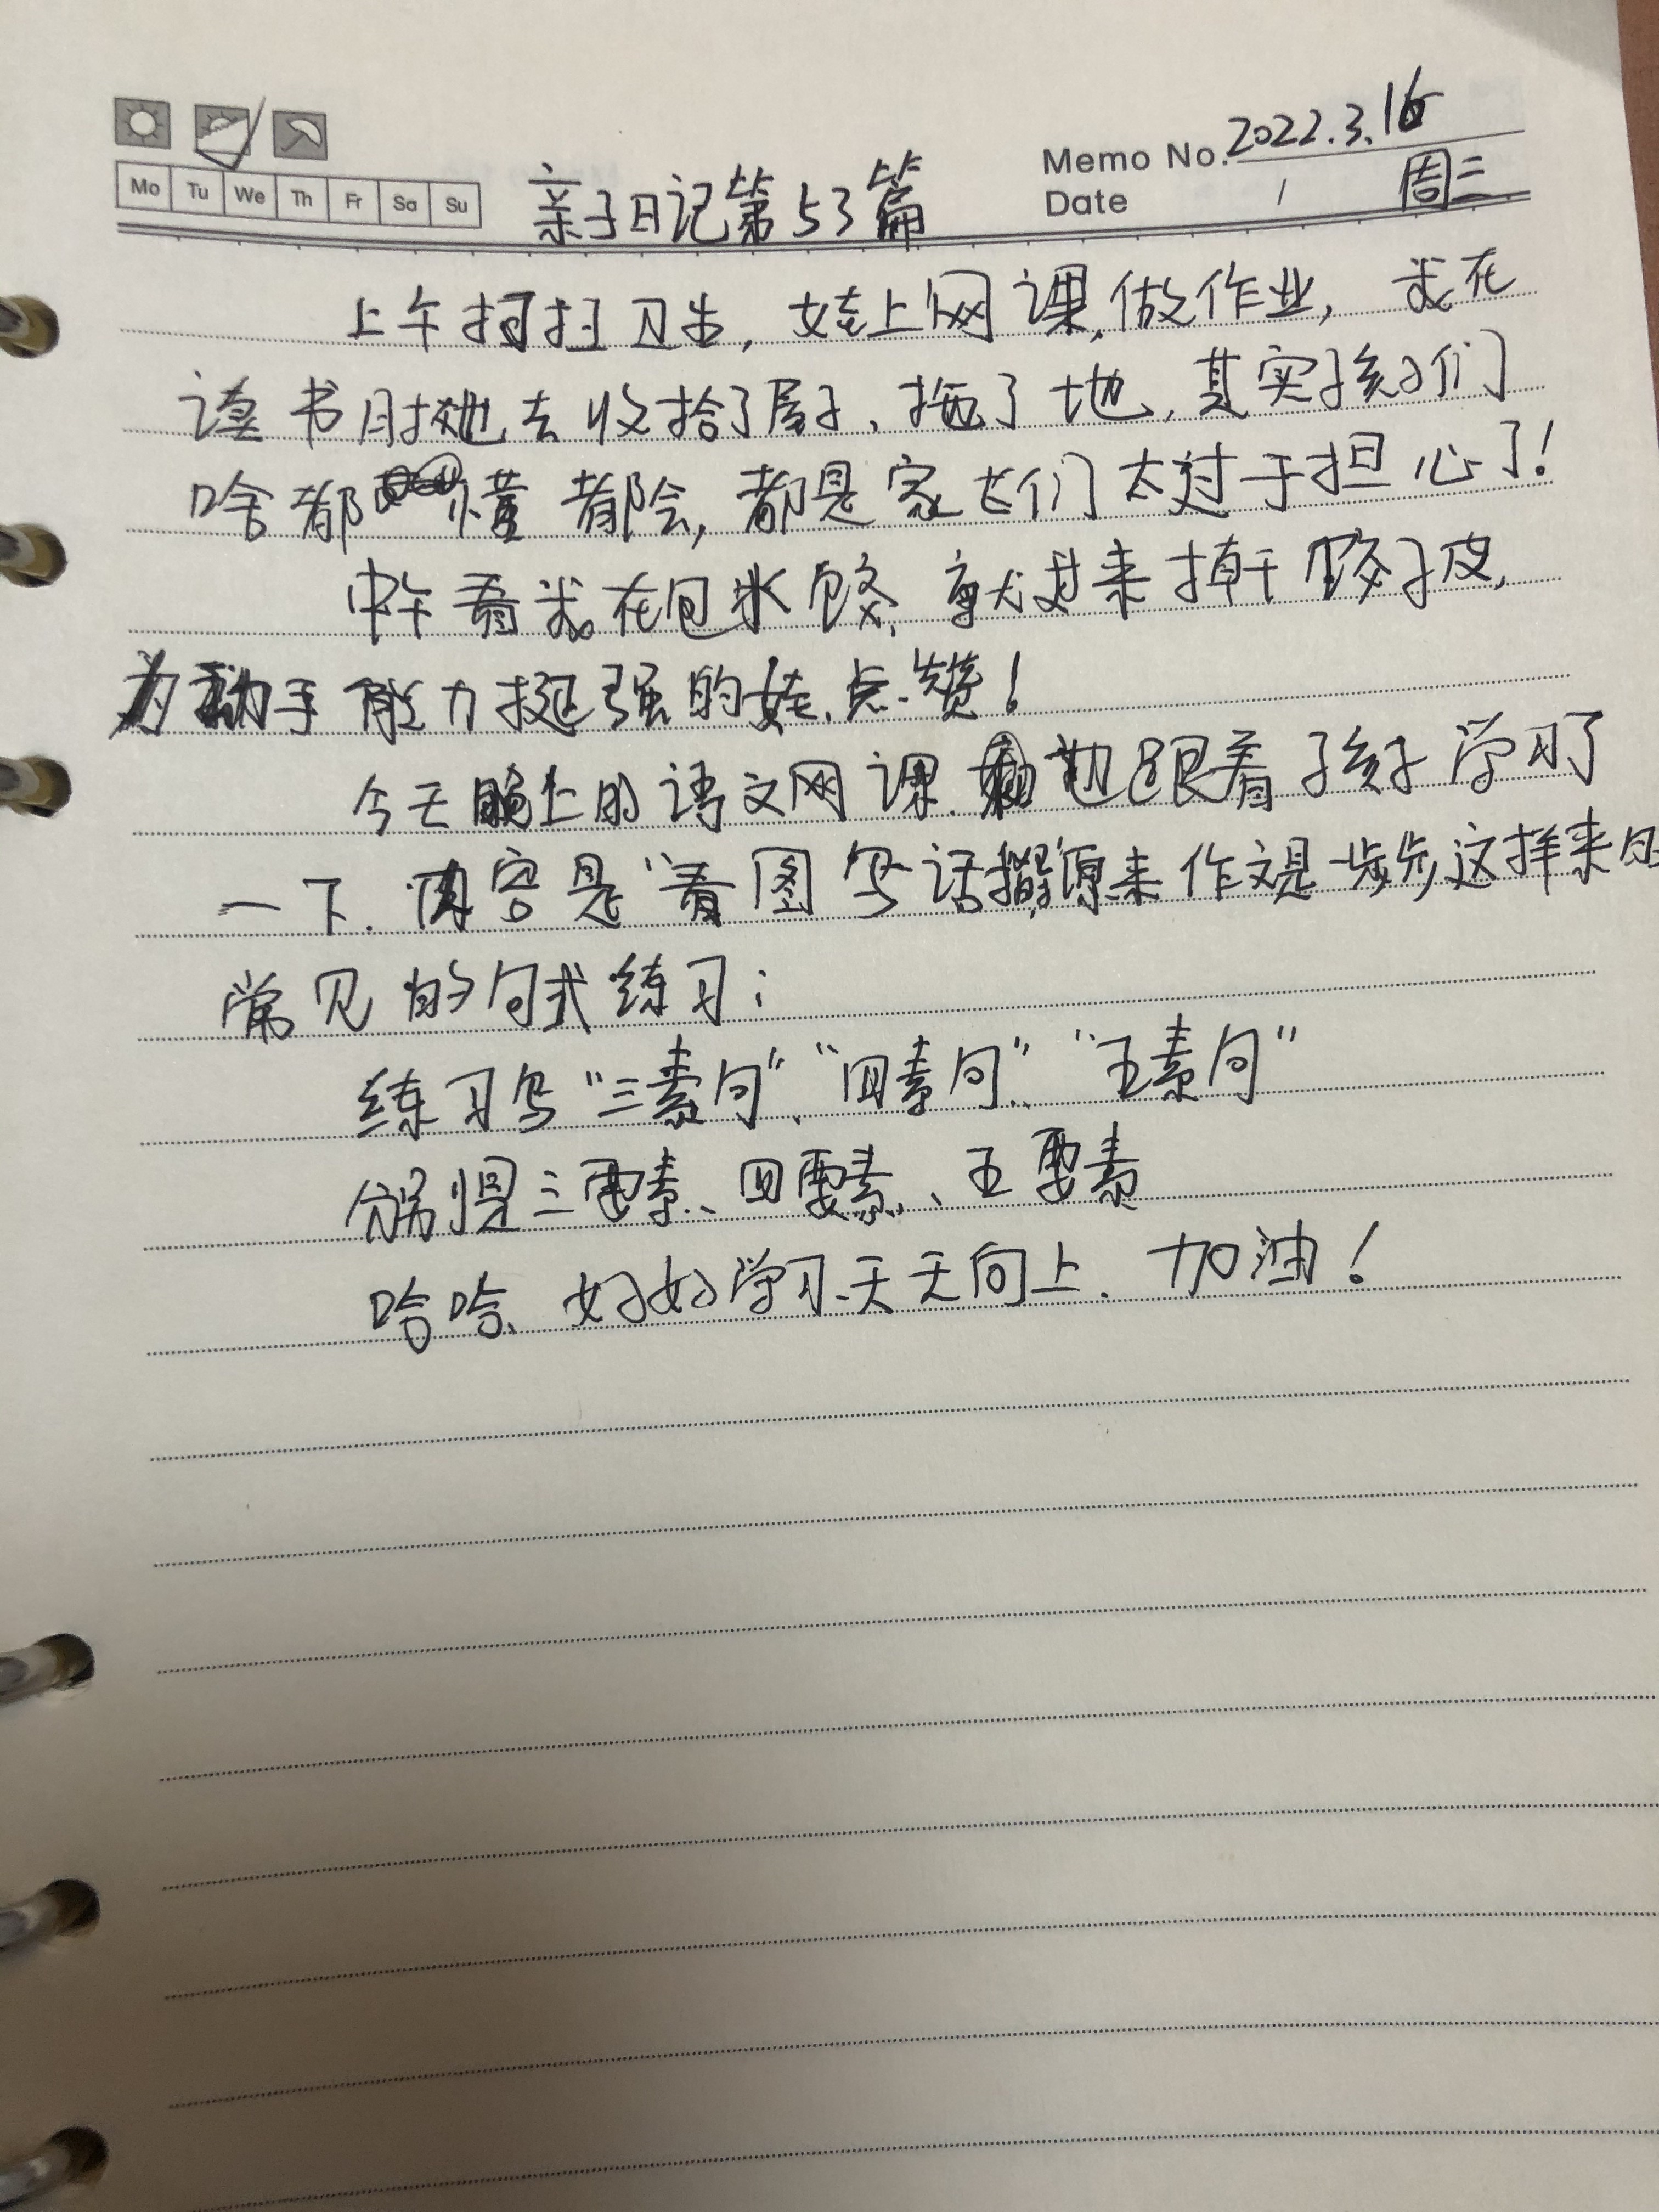 Memo No. 2022.3.16
Mo Tu We Th Fr Sa Su
Date / 周三
亲子日记第53篇
上午打扫卫生,娃上网课,做作业,我在
读书时她去收拾了屋子、拖了地,其实孩子们
啥都懂都会,都是家长们太过于担心了!
中午看我在包水饺,就过来擀饺子皮,
为动手能力挺强的娃点赞!
今天晚上的语文网课,我也跟着孩子学习了
一下.内容是"看图写话 原来作文是一步步这样来的
常见的句式练习:
练习写"三素句"、"四素句"、"五素句"
分别是三要素、四要素、五要素
哈哈、好好学习天天向上.加油!